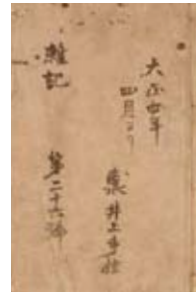 大正廿年
四月ヨリ
井上
雑記
第二十六號